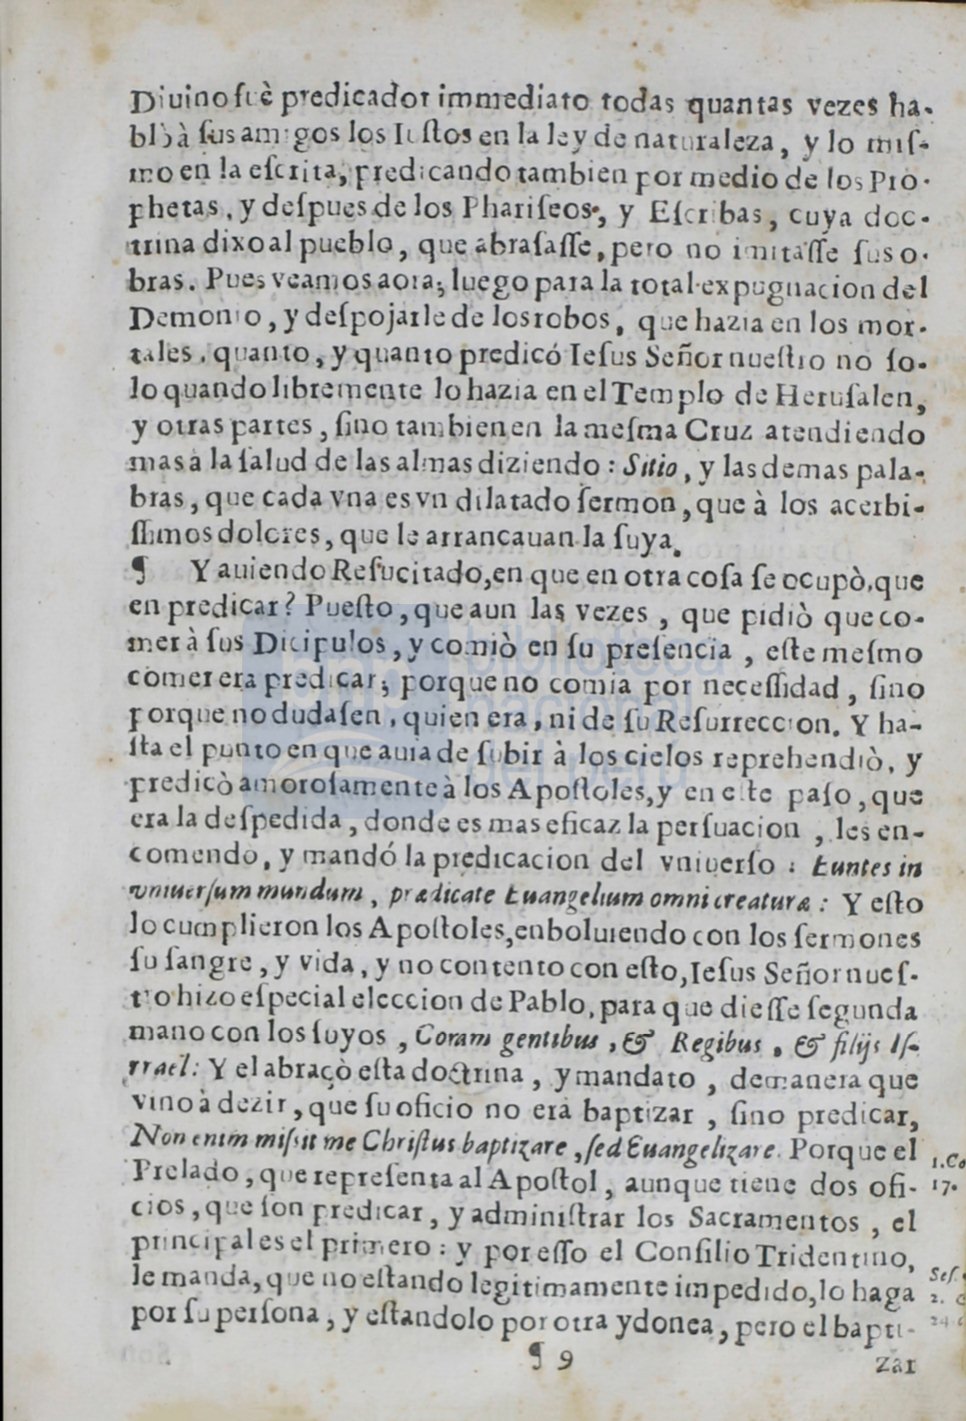 Diuino fuè predicador immediato todas quantas vezes ha-
blò à sus amigos los Iustos en la ley de naturaleza, y lo mis-
mo en la escrita, predicando tambien por medio de los Pro-
phetas, y despues de los Phariseos, y Escribas, cuya doc-
trina dixo al pueblo, que abrasasse, pero no imitasse sus o-
bras. Pues veamos aora; luego para la total expugnacion del
Demonio, y despojarle de los robos, que hazia en los mor-
tales, quanto, y quanto predicó Iesus Señor nuestro no so-
lo quando libremente lo hazia en el Templo de Herusalen,
y otras partes, sino tambien en la mesma Cruz atendiendo
mas à la salud de las almas diziendo: Sitio, y las demas pala-
bras, que cada vna es vn dilatado sermon, que à los acerbi-
ssimos dolores, que le arrancauan la suya.
¶ Y auiendo Resucitado, en que en otra cosa se ocupò, que
en predicar? Puesto, que aun las vezes, que pidiò que co-
mer à sus Dicipulos, y comiò en su presencia, este mesmo
comer era predicar; porque no comia por necessidad, sino
porque no dudasen, quien era, ni de su Resurreccion. Y ha-
sta el punto en que auia de subir à los cielos reprehendiò, y
predicò amorosamente à los Apostoles, y en este paso, que
era la despedida, donde es mas eficaz la persuacion, les en-
comendo, y mandó la predicacion del vniverso: Euntes in
vniuersum mundum, prædicate Euangelium omni creaturæ: Y esto
lo cumplieron los Apostoles, enboluiendo con los sermones
su sangre, y vida, y no contento con esto, Iesus Señor nues-
tro hizo especial eleccion de Pablo, para que diesse segunda
mano con los suyos, Coram gentibus, & Regibus, & filijs Is-
rrael: Y el abraçò esta doctrina, y mandato, demanera que
vino à dezir, que su oficio no era baptizar, sino predicar,
Non enim misit me Christus baptizare, sed Euangelizare. Porque el
1.Co
Prelado, que representa al Apostol, aunque tiene dos ofi-
17.
cios, que son predicar, y administrar los Sacramentos, el
principal es el primero: y por esso el Consilio Tridentino,
le manda, que no estando legitimamente impedido, lo haga
Ses.
2. c
por su persona, y estandolo por otra ydonea, pero el bapti-
24
¶ 9
zar
biblioteca
nacional
del perú